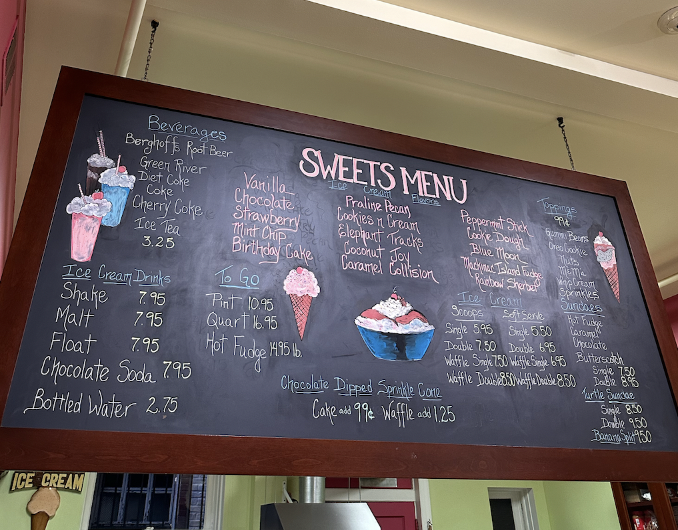 SWEETS MENU
Beverages
Berghoff's Root Beer
Green River
Diet Coke
Coke
Cherry Coke
Ice Tea
3.25
Ice Cream Drinks
Shake 7.95
Malt 7.95
Float 7.95
Chocolate Soda 7.95
Bottled Water 2.75
Ice Cream Flavors
Vanilla
Chocolate
Strawberry
Mint Chip
Birthday Cake
Praline Pecan
Cookies n Cream
Elephant Tracks
Coconut Joy
Caramel Collision
Peppermint Stick
Cookie Dough
Blue Moon
Mackinac Island Fudge
Rainbow Sherbet
To Go
Pint 10.95
Quart 16.95
Hot Fudge 14.95 lb.
Chocolate Dipped Sprinkle Cone
Cake add 99¢ Waffle add 1.25
Ice Cream
Scoops
Single 5.95
Double 7.50
Waffle Single 7.50
Waffle Double 8.50
Soft Serve
Single 5.50
Double 6.95
Waffle Single 6.95
Waffle Double 8.50
Toppings
99¢
Gummi Bears
Oreo Cookie
Nuts
M&M's
Whip Cream
Sprinkles
Sundaes
Hot Fudge
Caramel
Chocolate
Butterscotch
Single 7.50
Double 8.95
Turtle Sundae
Single 8.50
Double 9.50
Banana Split 9.50
ICE CREAM